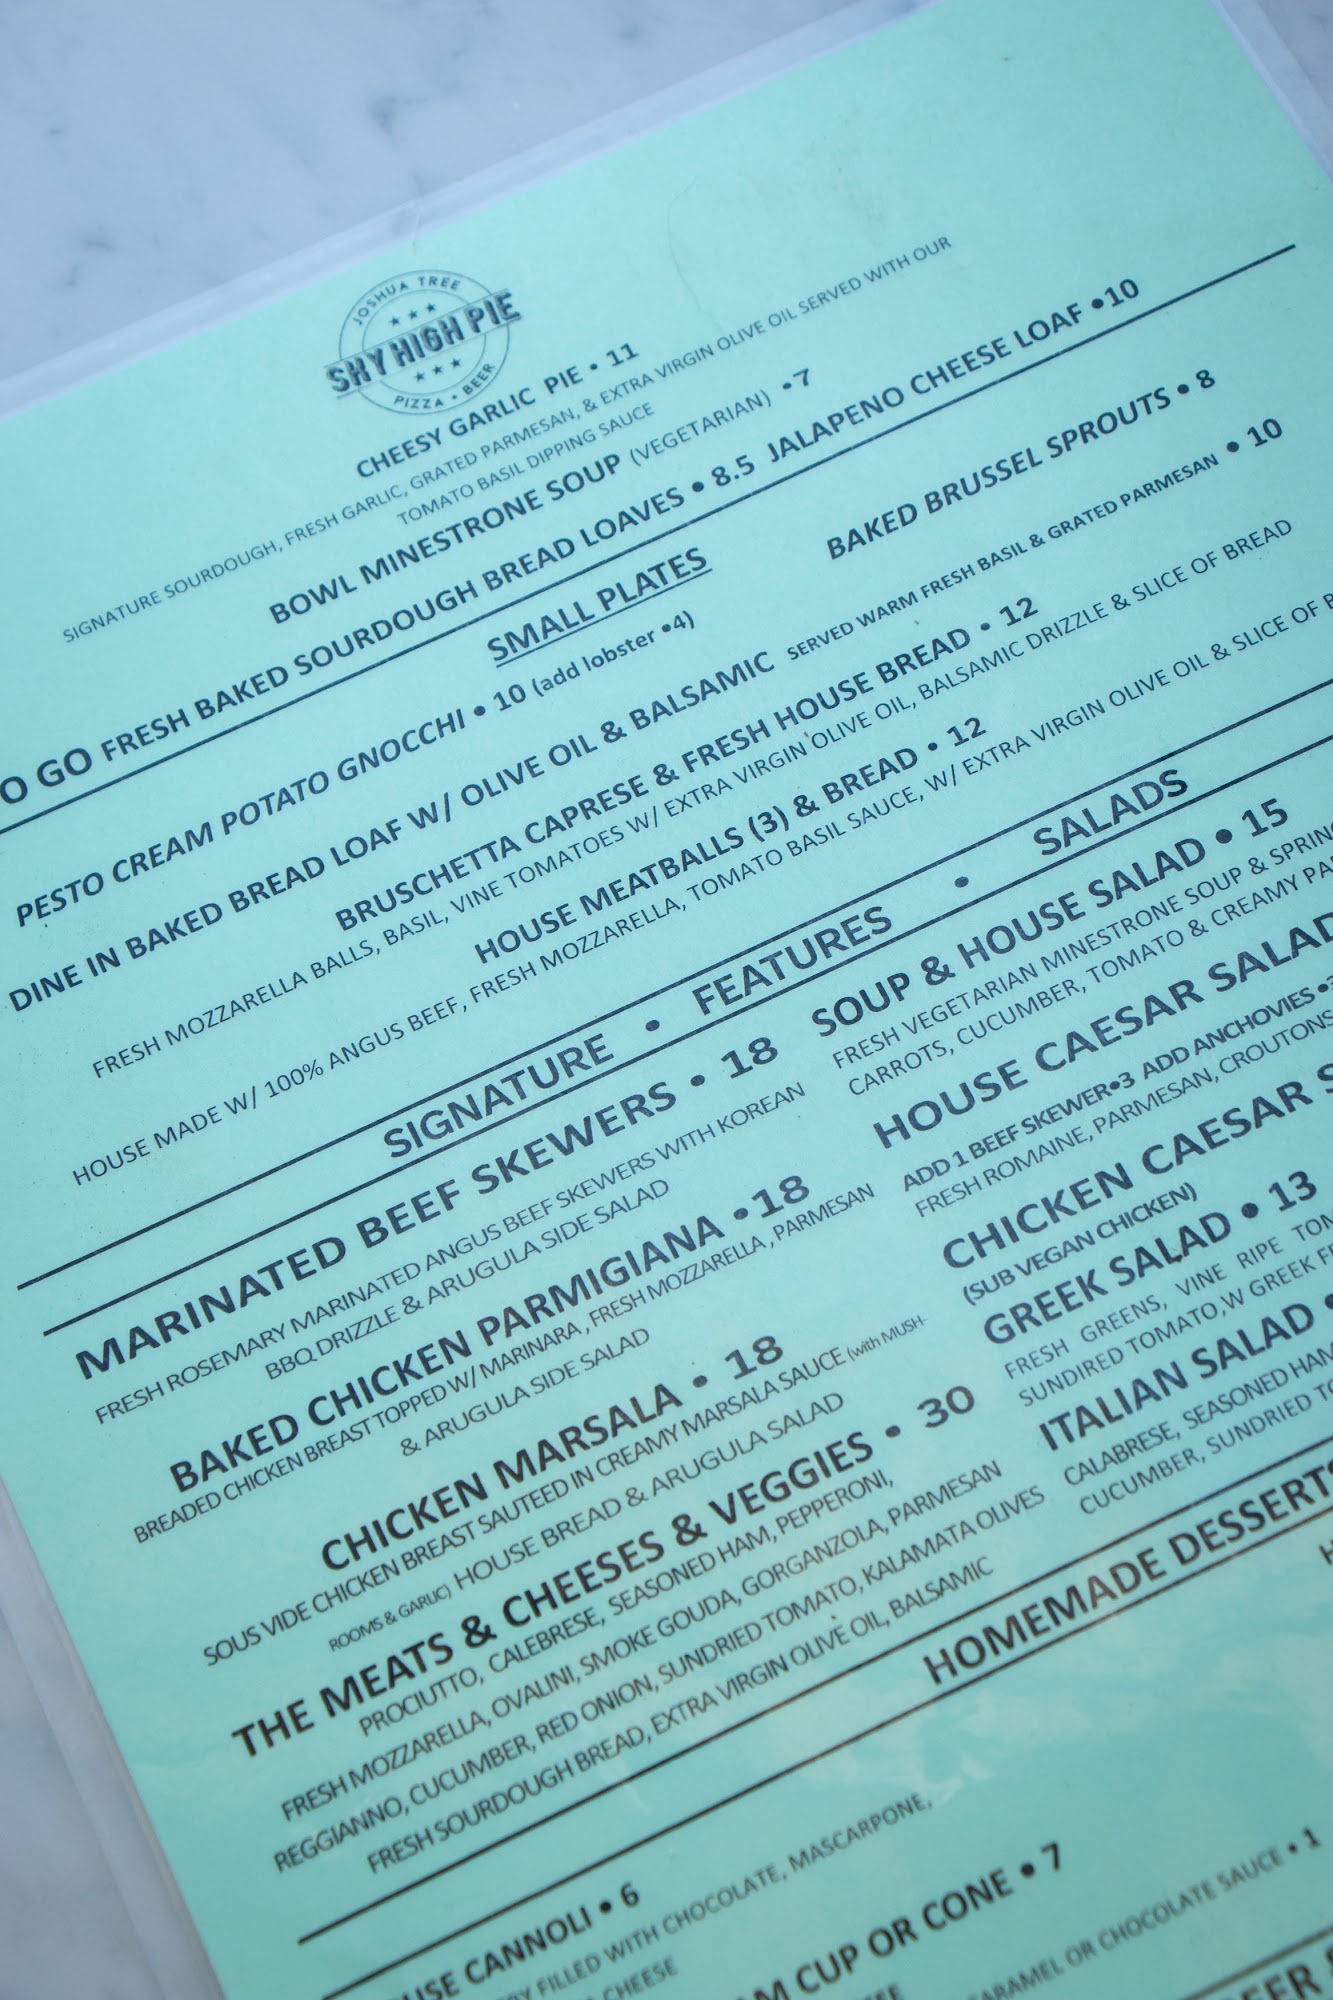 JOSHUA TREE
SKY HIGH PIE
PIZZA • BEER
CHEESY GARLIC PIE • 11
SIGNATURE SOURDOUGH, FRESH GARLIC, GRATED PARMESAN, & EXTRA VIRGIN OLIVE OIL SERVED WITH OUR
TOMATO BASIL DIPPING SAUCE
BOWL MINESTRONE SOUP (VEGETARIAN) •7
O GO FRESH BAKED SOURDOUGH BREAD LOAVES • 8.5 JALAPENO CHEESE LOAF •10
SMALL PLATES
PESTO CREAM POTATO GNOCCHI • 10 (add lobster •4)
BAKED BRUSSEL SPROUTS • 8
DINE IN BAKED BREAD LOAF W/ OLIVE OIL & BALSAMIC SERVED WARM FRESH BASIL & GRATED PARMESAN • 10
BRUSCHETTA CAPRESE & FRESH HOUSE BREAD • 12
FRESH MOZZARELLA BALLS, BASIL, VINE TOMATOES W/ EXTRA VIRGIN OLIVE OIL, BALSAMIC DRIZZLE & SLICE OF BREAD
HOUSE MEATBALLS (3) & BREAD • 12
HOUSE MADE W/ 100% ANGUS BEEF, FRESH MOZZARELLA, TOMATO BASIL SAUCE, W/ EXTRA VIRGIN OLIVE OIL & SLICE OF B
SIGNATURE • FEATURES • SALADS
MARINATED BEEF SKEWERS • 18
FRESH ROSEMARY MARINATED ANGUS BEEF SKEWERS WITH KOREAN
BBQ DRIZZLE & ARUGULA SIDE SALAD
BAKED CHICKEN PARMIGIANA •18
BREADED CHICKEN BREAST TOPPED W/ MARINARA , FRESH MOZZARELLA , PARMESAN
& ARUGULA SIDE SALAD
CHICKEN MARSALA • 18
SOUS VIDE CHICKEN BREAST SAUTEED IN CREAMY MARSALA SAUCE (with MUSH-
ROOMS & GARLIC) HOUSE BREAD & ARUGULA SALAD
THE MEATS & CHEESES & VEGGIES • 30
PROCIUTTO, CALEBRESE, SEASONED HAM, PEPPERONI,
FRESH MOZZARELLA, OVALINI, SMOKE GOUDA, GORGANZOLA, PARMESAN
REGGIANNO, CUCUMBER, RED ONION, SUNDRIED TOMATO, KALAMATA OLIVES
FRESH SOURDOUGH BREAD, EXTRA VIRGIN OLIVE OIL, BALSAMIC
SOUP & HOUSE SALAD • 15
FRESH VEGETARIAN MINESTRONE SOUP & SPRIN
CARROTS, CUCUMBER, TOMATO & CREAMY PA
HOUSE CAESAR SALAD
ADD 1 BEEF SKEWER•3 ADD ANCHOVIES •
FRESH ROMAINE, PARMESAN, CROUTONS
CHICKEN CAESAR S
(SUB VEGAN CHICKEN)
GREEK SALAD • 13
FRESH GREENS, VINE RIPE TOM
SUNDIRED TOMATO,W GREEK F
ITALIAN SALAD •
CALABRESE, SEASONED HAM
CUCUMBER, SUNDRIED TO
HOMEMADE DESSERTS
USE CANNOLI • 6
RY FILLED WITH CHOCOLATE, MASCARPONE,
CHEESE
AM CUP OR CONE • 7
ARAMEL OR CHOCOLATE SAUCE • 1
EER